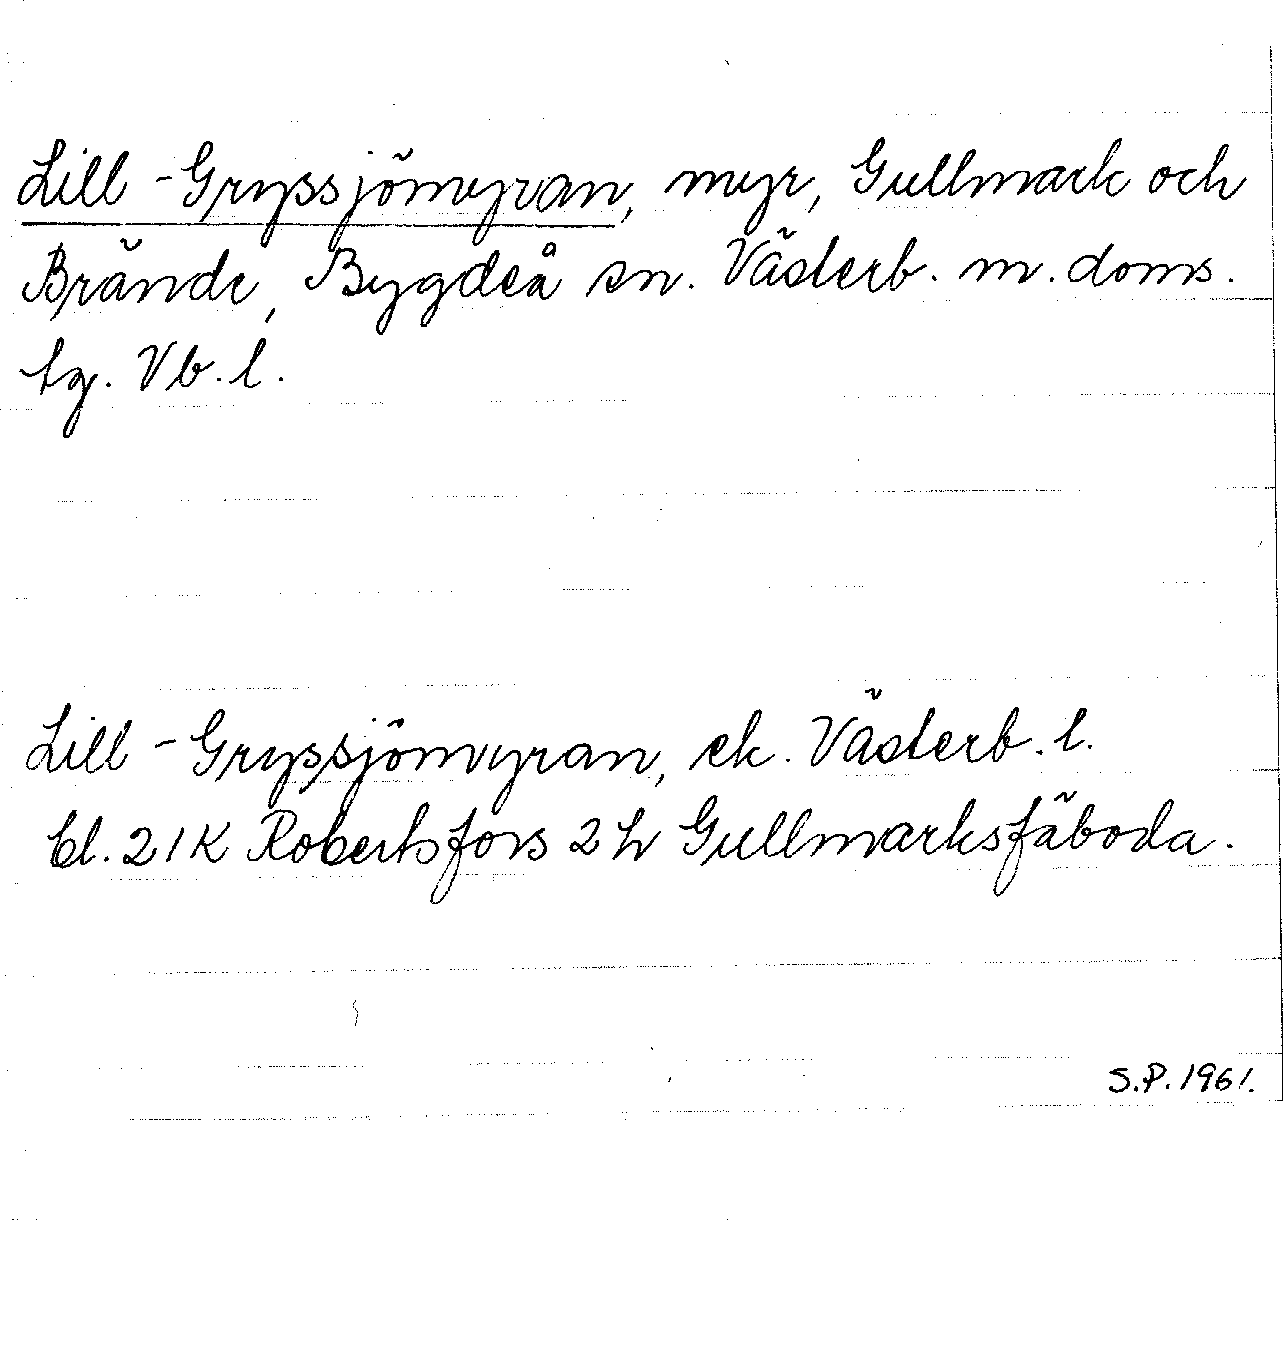 Lill-Gryssjömyran, myr, Gullmark och
Brände, Bygdeå sn. Västerb. m. doms.
tg. Vb. l.
Lill-Gryssjömyran, ek. Västerb. l.
bl. 21K Robertsfors 2h Gullmarksfäboda.
S.P. 1961.